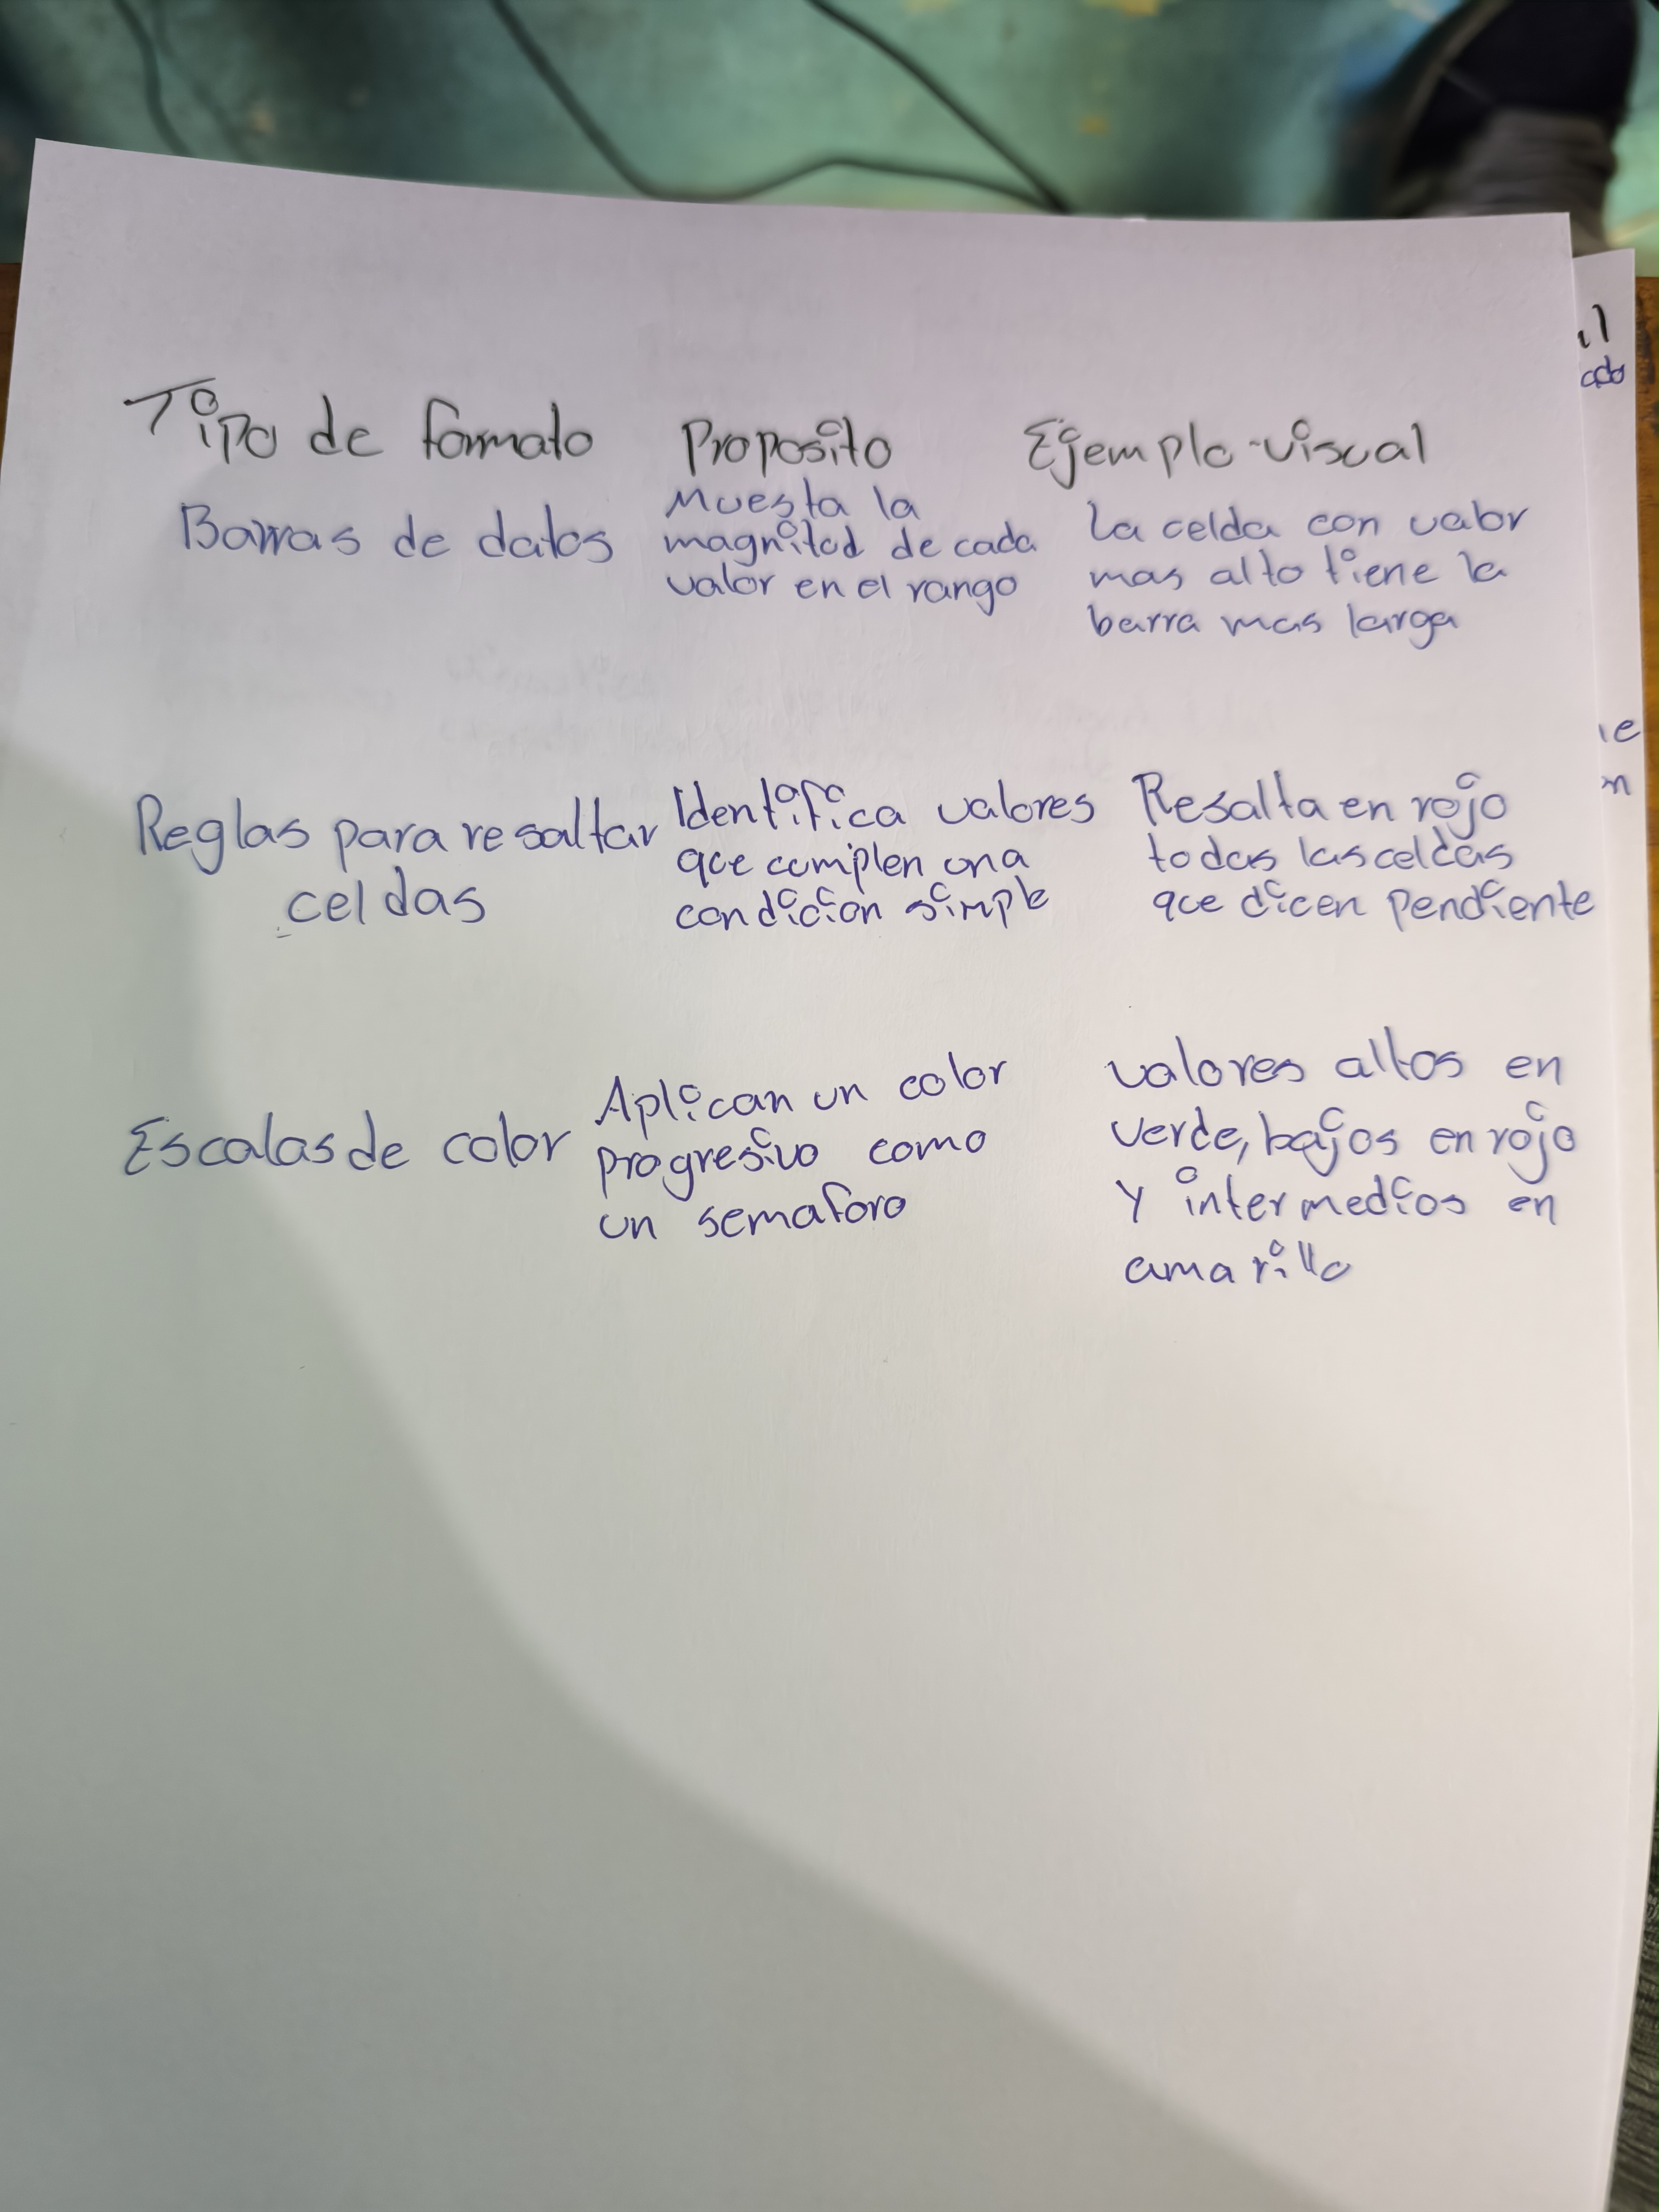 Tipo de formato Proposito Ejemplo visual
Barras de datos
Muesta la
magnitud de cada
valor en el rango
La celda con valor
mas alto tiene la
barra mas larga
Reglas para resaltar
celdas
Identifica valores
que cumplen una
condicion simple
Resalta en rojo
todas las celdas
que dicen pendiente
Escalas de color
Aplican un color
progresivo como
un semaforo
valores altos en
verde, bajos en rojo
y intermedios en
amarillo